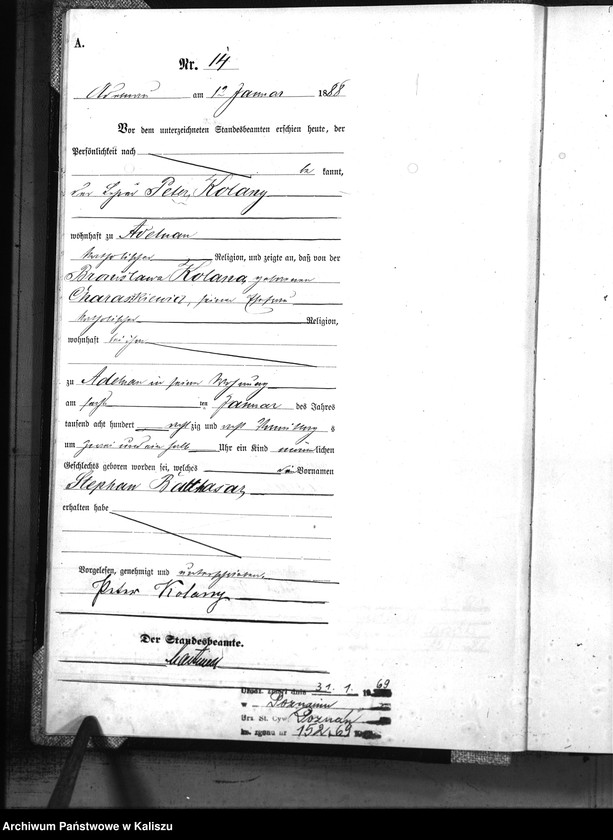 A.
Nr. 14
Adelnau am 12 Januar 1888
Vor dem unterzeichneten Standesbeamten erschien heute, der
Persönlichkeit nach
be kannt,
der Lehrer Peter Kolany
wohnhaft zu Adelnau
katholischer Religion, und zeigte an, daß von der
Bronislawa Kolany, geborenen
Charaskiewicz, seiner Ehefrau
katholischer Religion,
wohnhaft bei ihm
zu Adelnau in seiner Wohnung
am sechsten Januar des Jahres
tausend acht hundert acht zig und acht Vormittags
um zwei und ein halb Uhr ein Kind männlichen
Geschlechts geboren worden sei, welches die Vornamen
Stephan Balthasar
erhalten habe
Vorgelesen, genehmigt und unterschrieben.
Peter Kolany
Der Standesbeamte.
dnia 31. 1. 1969
w Poznaniu
Urz. St. Cyw. Poznań
nr 158/69
Archiwum Państwowe w Kaliszu